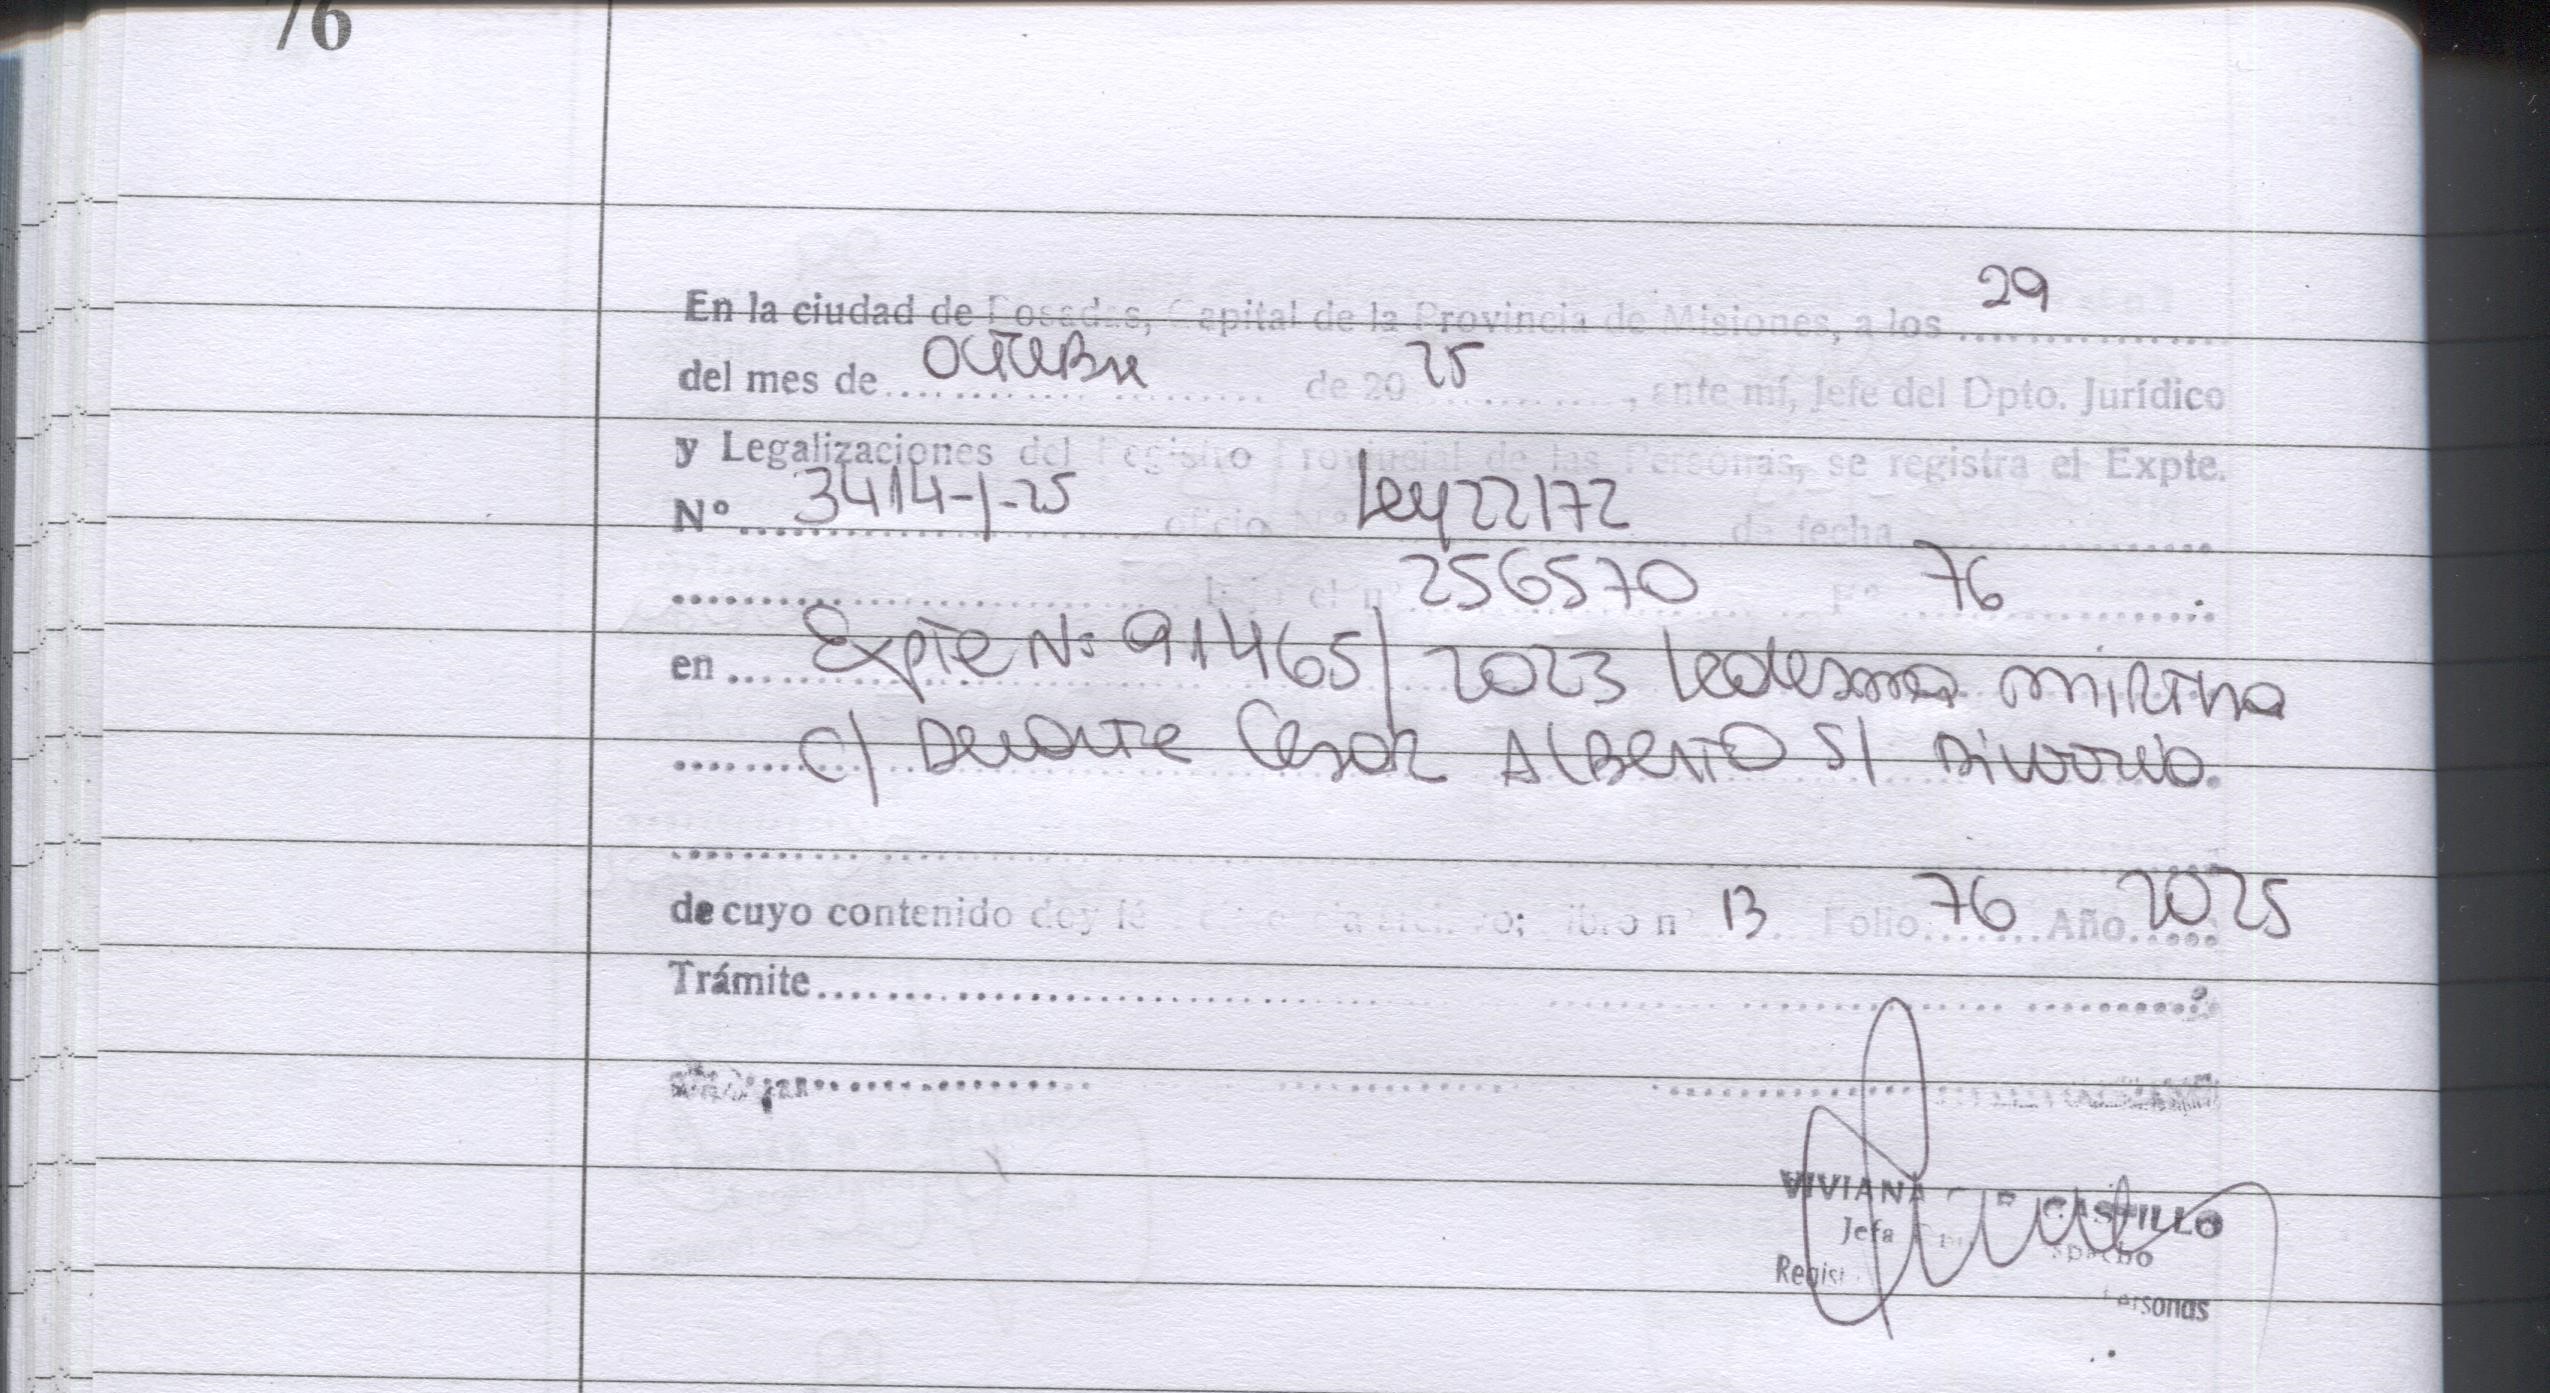 76
En la ciudad de Posadas, Capital de la Provincia de Misiones, a los 29
del mes de Octubre de 20 25, ante mí, Jefe del Dpto. Jurídico
y Legalizaciones del Registro Provincial de las Personas, se registra el Expte.
Nº 3414-J-25 oficio Nº Ley 22172 de fecha
bajo el nº 256570 Fº 76
en Expte Nº 91465/2023 Ledesma Mirtha
c/ Duarte Cesar Alberto s/ Divorcio.
de cuyo contenido doy fé libro nº 13 Folio 76 Año 2025
Trámite
VIVIANA CASTILLO
Jefa
Personas